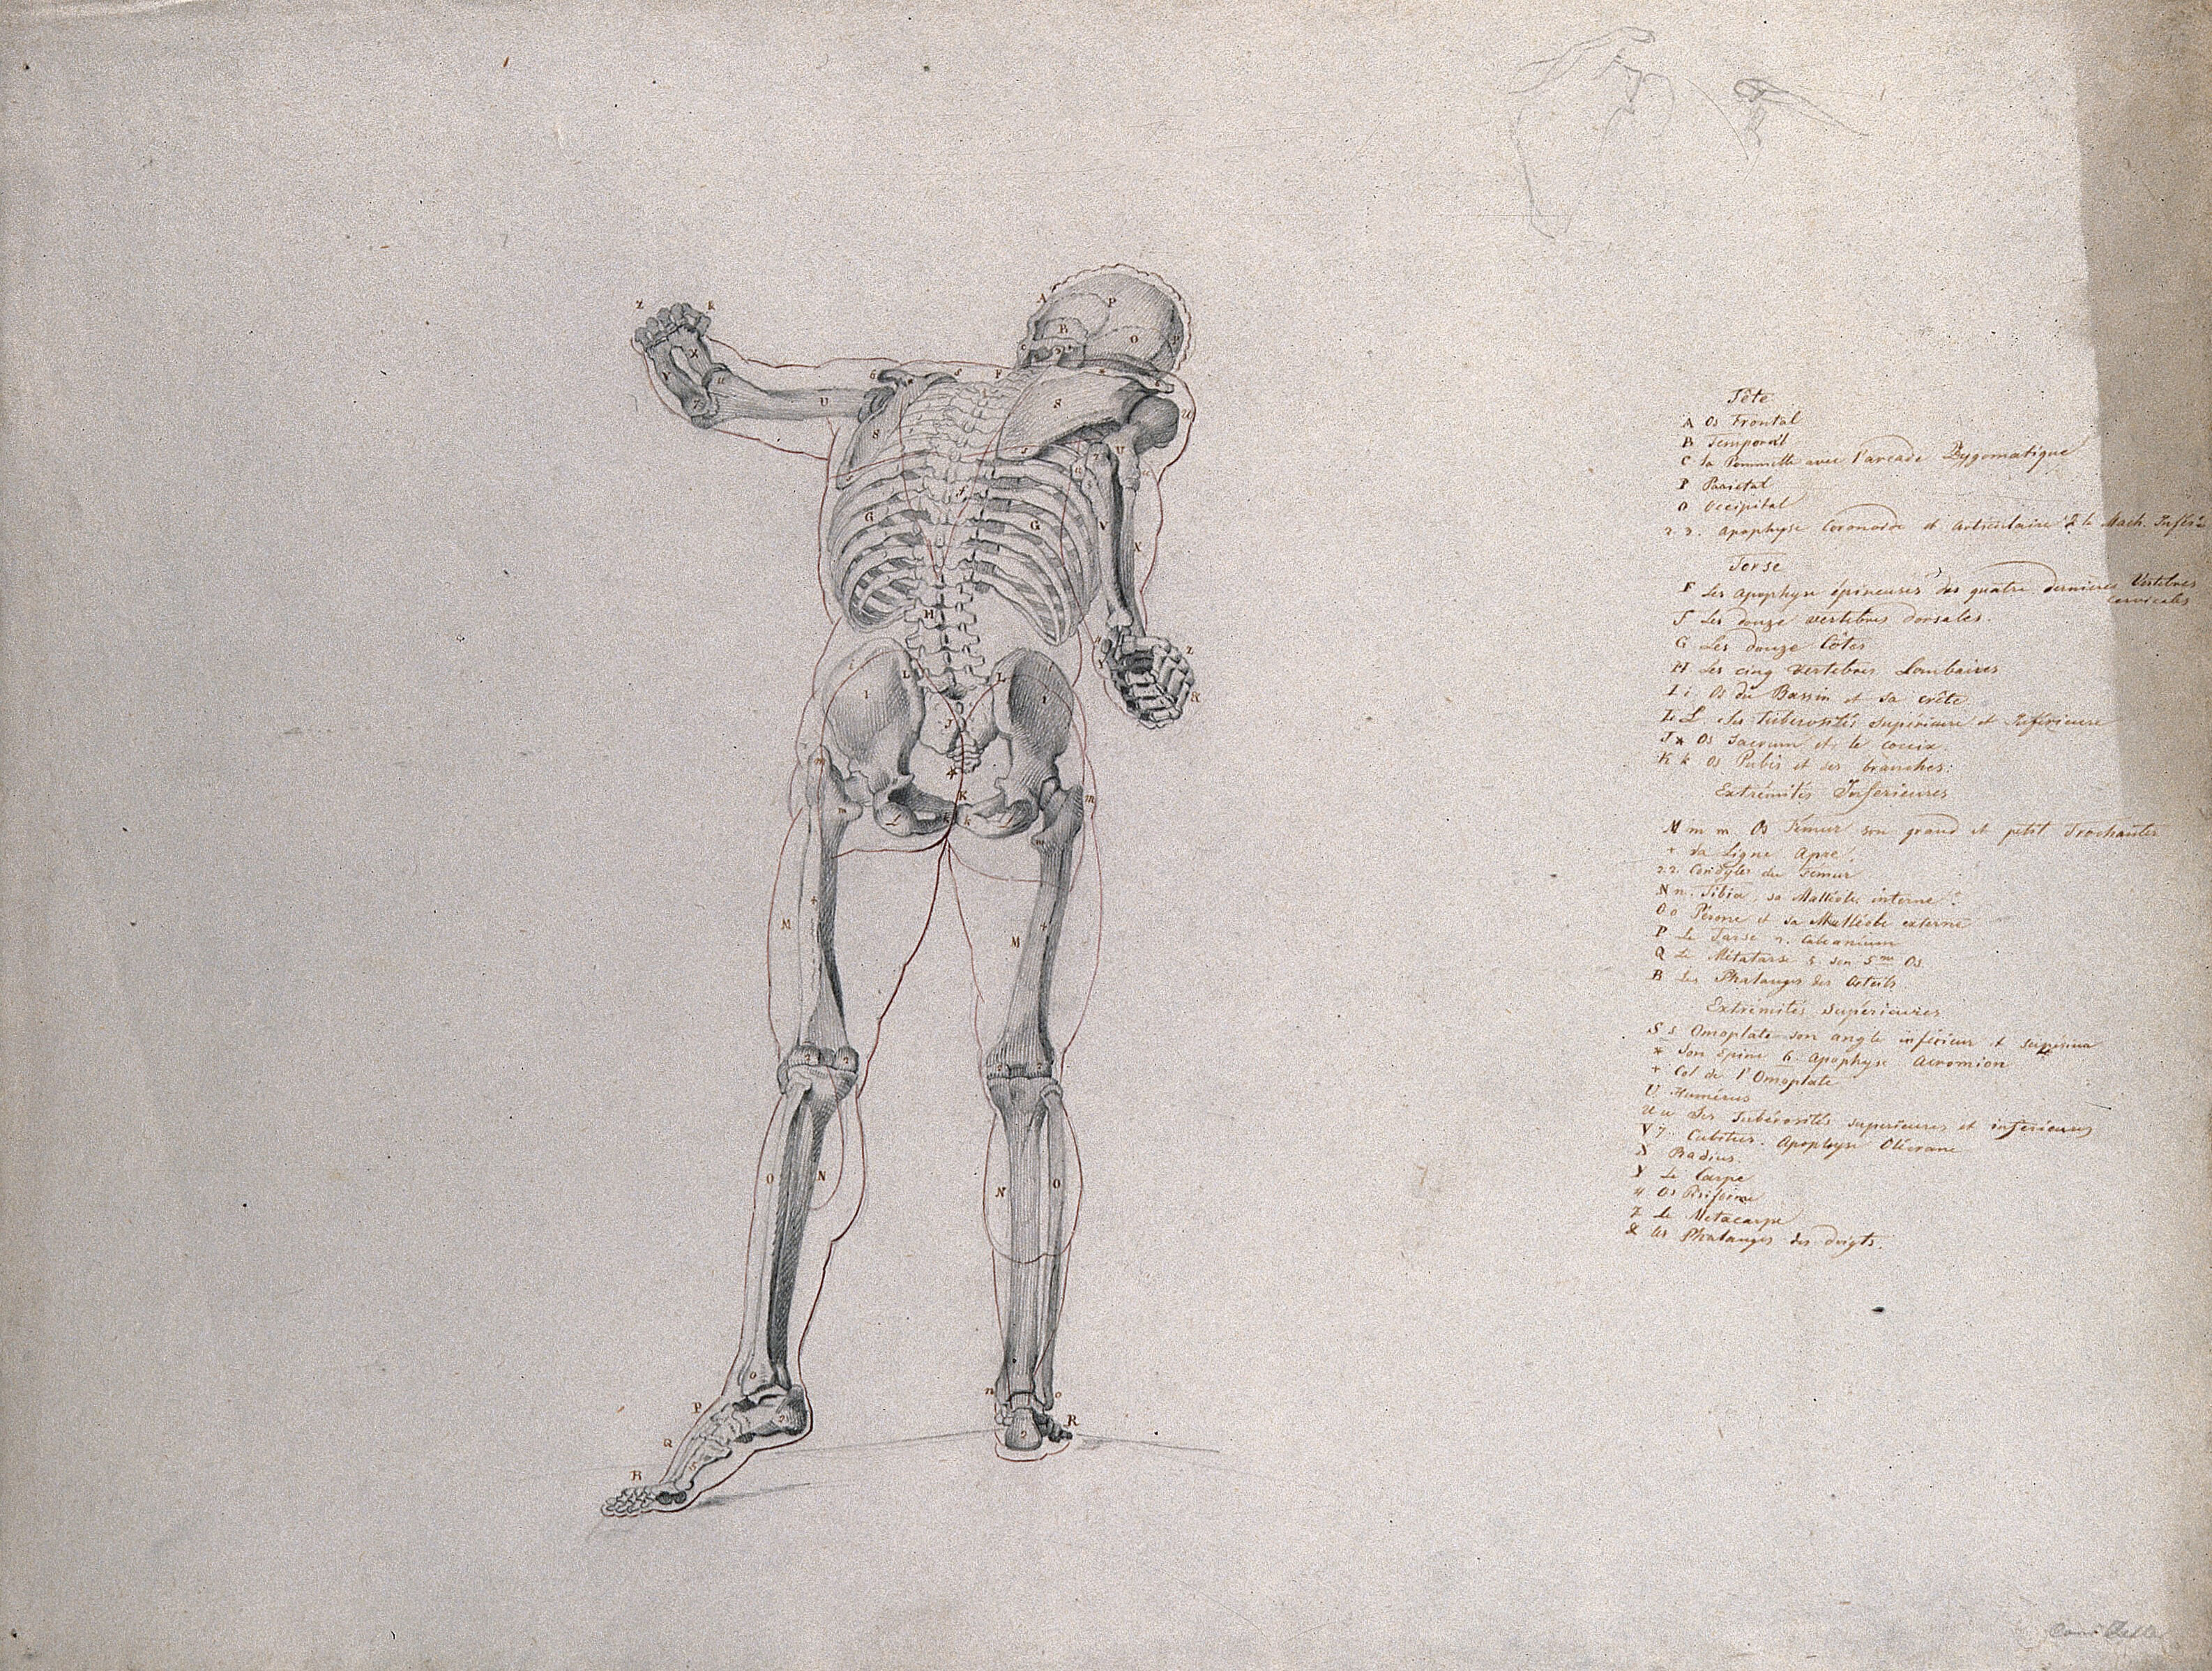 Tête
A Os Frontal
B Temporal
C la Pommette avec l'arcade Zygomatique
P Parietal
O Occipital
2. 3. Apophyse Coronoïde et Articulaire de la Mach. Infér
Torse
F Les Apophyse épineuses des quatre dernieres Vertebres
cervicales
f Les douze vertebres dorsales.
G Les douze Côtes
H Les cinq vertebres Lombaires
I i Os du Bassin et sa crête
L L ses Tuberosités Supérieure et Inférieure
J * Os Sacrum et le coccix.
K k Os Pubis et ses branches.
Extrémités Inferieures
M m m. Os Femur son grand et petit Trochanter
+ sa Ligne Apre.
2.2. Condyles du Femur
N n. Tibia, sa Malléole interne.
O o Pérone et sa Malléole externe
P Le Tarse 2.
Q Le Métatarse 5 son 5me Os.
R Les Phalanges des Orteils.
Extrémités Supérieures
S s Omoplate son angle inférieur et
* Son Epine 6. Apophyse Acromion
+ Col de l'Omoplate
U Humérus
U u Ses Tubérosités superieures et inferieures
V 7. Cubitus. Apophyse Olécrane
X Radius.
Y Le Carpe
4 Os Pisiforme
Z Le Metacarpe
& les Phalanges des doigts.